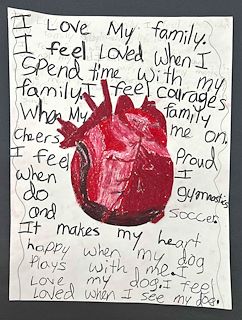 I Love My family.
I feel Loved when I
Spend time with my
family. I feel courages
When My family
Cheers me on.
I feel Proud
when I
do gymnastics
and soccer.
It makes my heart
happy when my dog
Plays with me. I
Love my dog. I feel
Loved when I see my dog.